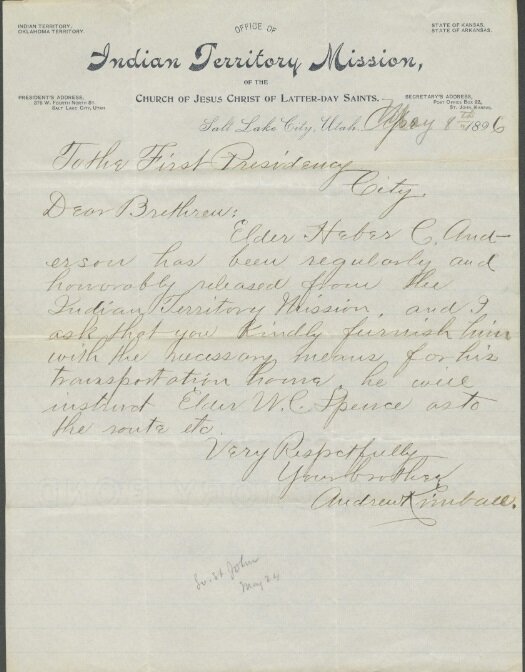 INDIAN TERRITORY.
OKLAHOMA TERRITORY.
OFFICE OF
STATE OF KANSAS.
STATE OF ARKANSAS.
Indian Territory Mission,
OF THE
PRESIDENT'S ADDRESS,
375 W. FOURTH NORTH ST.
SALT LAKE CITY, UTAH
CHURCH OF JESUS CHRIST OF LATTER-DAY SAINTS.
SECRETARY'S ADDRESS,
POST OFFICE BOX 22,
ST. JOHN, KANSAS.
Salt Lake City, Utah, May 8th 1896
To the First Presidency
City.
Dear Brethren:
Elder Heber C. And-
erson has been regularly and
honorably released from the
Indian Territory Mission, and I
ask that you kindly furnish him
with the necessary means for his
transportation home, he will
instruct Elder W. C. Spence as to
the route etc.
Very Respectfully
Your brother,
Andrew Kimball.
St John
May 24